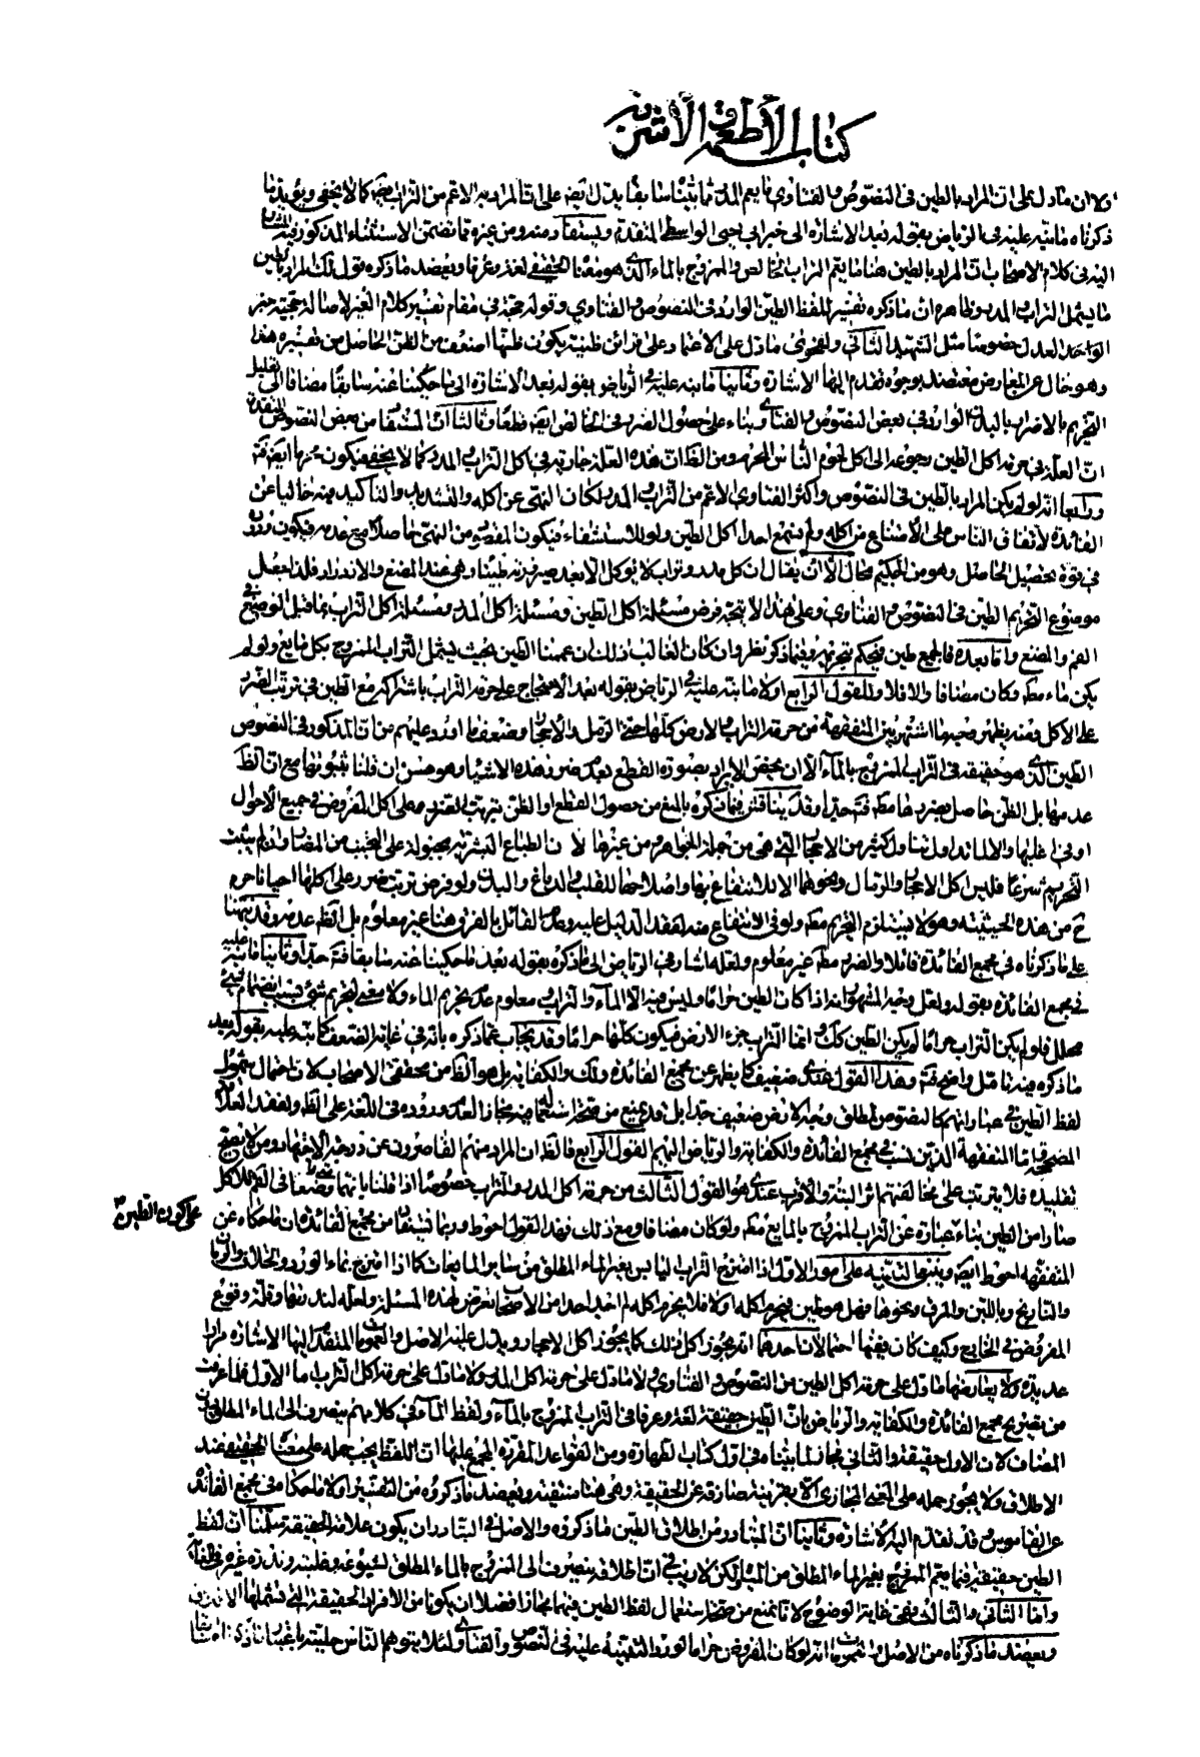 كتاب الأطعمة والأشربة
ولا ان ما دل على ان المراد بالطين فى النصوص و الفتاوى ما يعم المدر مما بيّناه سابقا يدل ايضا على ان المراد به الاعم من التراب ايضا كما لا يخفى و يؤيد ما
ذكرناه ما نبه عليه فى الرياض بقوله بعد الاشارة الى خبر ابى يحيى الواسطى المتقدمة و يستفاد منه و من غيره مما تضمن الاستثناء المذكور فيه
اليه فى كلام الاصحاب ان المراد بالطين هنا ما يعم التراب الخالص و الممزوج بالماء الذى هو معناه الحقيقى لغة و عرفا و يعضد ما ذكره بقول ذلك المراد بالطين
ما يشمل التراب و المدر و ظاهره ان ما ذكره تفسير للفظ الطين الوارد فى النصوص و الفتاوى و قوله حجة فى مقام تفسير كلام الغير لاصالة حجية خبر
الواحد العدل خصوصا مثل الشهيد الثانى و لفحوى ما دل على الاعتماد على قرائن ظنية يكون ظنها اضعف من الظن الحاصل من تفسيره هذا
وهو خال عن المعارض معتضد بوجوه تقدم اليها الاشارة و ثانيا ما نبه عليه فى الرياض بقوله بعد الاشارة الى ما حكيناه عنه سابقا مضافا الى تعليل
التحريم بالاضرار بالبدن الوارد فى بعض النصوص و الفتاوى بناء على حصول الضرر فى الخالص ايضا قطعا و ثالثا ان المستفاد من بعض النصوص المتقدمة
ان العلة فى حرمة اكل الطين رجوعه الى اكل لحوم الناس المحرم و من الظاهر ان هذه العلة جارية فى اكل التراب و المدر كما لا يخفى فيكون محرما ايضا ثمة
و رابعا انه لو لم يكن المراد بالطين فى النصوص و اكثر الفتاوى الاعم من التراب و المدر لكان النهى عن اكله و التشديد و التأكيد فيه خاليا عن
الفائدة لاتفاق الناس على الامتناع من اكله و لم نسمع احدا اكل الطين و لو للاستشفاء فيكون المقصود من النهى حاصلا مع عدمه فيكون وروده
فى قوة تحصيل الحاصل و هو من الحكيم محال الا ان يقال ان كل مدر و تراب لا يؤكل الا بعد صيرورته طينا و هى عند المضغ و الازدراد فلذا جعل
موضوع التحريم الطين فى النصوص و الفتاوى و على هذا لا يتجه فرض مسئلة اكل الطين و مسئلة اكل المدر و مسئلة اكل التراب بما قبل الوضع فى
الفم و المضغ و اما بعده فالجميع طين فيحكم بتحريمه و فيما ذكر نظر و ان كان الغالب ذلك ان عممنا الطين بحيث يشمل التراب الممزوج بكل مايع و لو لم
يكن ماء مطلقا و كان مضافا و الا فلا و للقول الرابع اولا ما نبه عليه فى الرياض بقوله بعد الاحتجاج على حرمة التراب باشتراكه مع الطين فى ترتب الضرر
على الاكل و منه يظهر وجه ما اشتهر بين المتفقهة من حرمة التراب و الارض كلها حتى الرمل و الاحجار و ضعف ما اورد عليهم من ان المذكور فى النصوص
الطين الذى هو حقيقة فى التراب الممزوج بالماء الا ان يخص الايراد بصورة القطع بعدم ضرر هذه الاشياء و هو حسن ان قلنا بثبوتها مع ان الظاهر
عدمها بل الظن حاصل بضررها مطلقا فتحه جدا و قد يناقش فيما ذكره بالمنع من حصول القطع او الظن بترتب الضرر على اكل المفروض فى جميع الاحوال
او فى اغلبها و الا لما تداول تناول كثير من الاحجار التى هى من جملة الجواهر و من غيرها لان الطباع البشرية مجبولة على التجنب من المضار و ان لم يثبت
التحريم شرعا فليس اكل الاحجار و الرمال و نحوهما الا للانتفاع بها و اصلاحها للقلب و الدماغ و البدن و لو فرض ترتب ضرر على اكلها احيانا حرم
ح من هذه الحيثية و هو لا يستلزم التحريم مطلقا و لو فى الانتفاع منه لفقد الدليل عليه و عدم القائل بالفرق هنا غير معلوم بل الظاهر عدمه و قد نبهنا
على ما ذكرناه فى مجمع الفائدة قائلا و الضرر مطلقا غير معلوم و لعله اشار فى الرياض الى ما ذكره بقوله بعد ما حكيناه عنه سابقا فتحه جدا و ثانيا ما نبه عليه
فى مجمع الفائدة بقوله و لعل وجه المشهور انه اذا كان الطين حراما و ليس فيه الا الماء و التراب و معلوم عدم تحريم الماء و لا معنى لتحريم شىء بسبب انضمام شىء
محلل فلو لم يكن التراب حراما لم يكن الطين كك و انما التراب جزء الارض فيكون كلها حراما و قد يجاب عما ذكره بانه فى غاية الضعف كما نبه عليه بقوله بعد
ما ذكره و فيه تامل واضح ثمة و هذا القول عندى ضعيف كما يظهر عن مجمع الفائدة و لك و الكفاية بل هو الظاهر من محققى الاصحاب كلا و احتمال شمول
لفظ الطين فى عباراتهم كالنصوص لمطلق وجه الارض ضعيف جدا بل قد يمنع من صحة استعماله فيه مجازا لعدم وروده فى اللغة على الظاهر و لفقد العلاقة
المصححة و اما المتفقهة الذين نسب فى مجمع الفائدة و الكفاية و الرياض اليهم القول الرابع فالظاهر ان المراد منهم القاصرون عن درجة الاجتهاد و من لا يصح
تقليده فلا يترتب على مخالفتهم اثر البتة و الاقرب عندى هو القول الثالث من حرمة اكل المدر و التراب خصوصا اذا قلنا بانهما بعد وضعهما فى الفم للاكل
صارا من الطين بناء على كون الطين عبارة عن التراب الممزوج بالمايع مطلقا و لو كان مضافا و مع ذلك فهذا القول احوط و ربما يستفاد من مجمع الفائدة ان ما حكاه عن
المتفقهة احوط ايضا و ينبغى التنبيه على امور الاول اذا امتزج التراب اليابس بغير الماء المطلق من ساير المايعات كما اذا امتزج بماء الورد و الخلاف و الرمان
و النارنج و باللبن و المرق و نحوها فهل هو طين فيحرم اكله او لا فلا يحرم اكله لم اجد احدا من الاصحاب تعرض لهذه المسئلة و لعله لندرتها و قلة وقوع
المفروض فى الخارج و كيف كان ففيها احتمالان احدهما انه يجوز اكل ذلك كما يجوز اكل الاحجار و يدل عليه الاصل و العمومات المتقدم اليها الاشارة مرارا
عديدة و لا يعارضها ما دل على حرمة اكل الطين من النصوص و الفتاوى و لا ما دل على حرمة اكل المدر و لا ما دل على حرمة اكل التراب اما الاول فلما عرفت
من تصريح مجمع الفائدة و الكفاية و الرياض بان الطين حقيقة لغة و عرفا فى التراب الممزوج بالماء و لفظ الماء فى كلامهم ينصرف الى الماء المطلق دون
المضاف لان الاول حقيقة و الثانى مجاز لما بيناه فى اول كتاب الطهارة و من القواعد المقررة المجمع عليها ان اللفظ يجب حمله على معناه الحقيقى عند
الاطلاق و لا يجوز حمله على المعنى المجازى الا بقرينة صارفة عن الحقيقة و هى هنا منتفية و يعضد ما ذكروه من التفسير اولا ما حكاه فى مجمع الفائدة
عن القاموس و قد تقدم اليه الاشارة و ثانيا ان المتبادر من اطلاق الطين ما ذكروه و الاصل فى التبادر ان يكون علامة الحقيقة سلمنا ان لفظ
الطين حقيقة فيما يعم الممزوج بغير الماء المطلق من المايع لكن لا ريب فى ان اطلاقه ينصرف الى الممزوج بالماء المطلق لشيوعه و غلبته و ندرة غيره فى الغاية
و اما الثانى و الثالث ففى غاية الوضوح لانا نمنع من صحة استعمال لفظ الطين فيهما مجازا فضلا ان يكونا من الافراد الحقيقة التى يشملها الاطلاق
و يعضد ما ذكرناه من الاصل و العمومات انه لو كان المفروض حراما لورد التنبيه عليه فى النصوص و الفتاوى لئلا يتوهم الناس حليته باعتبار
على كون الطين